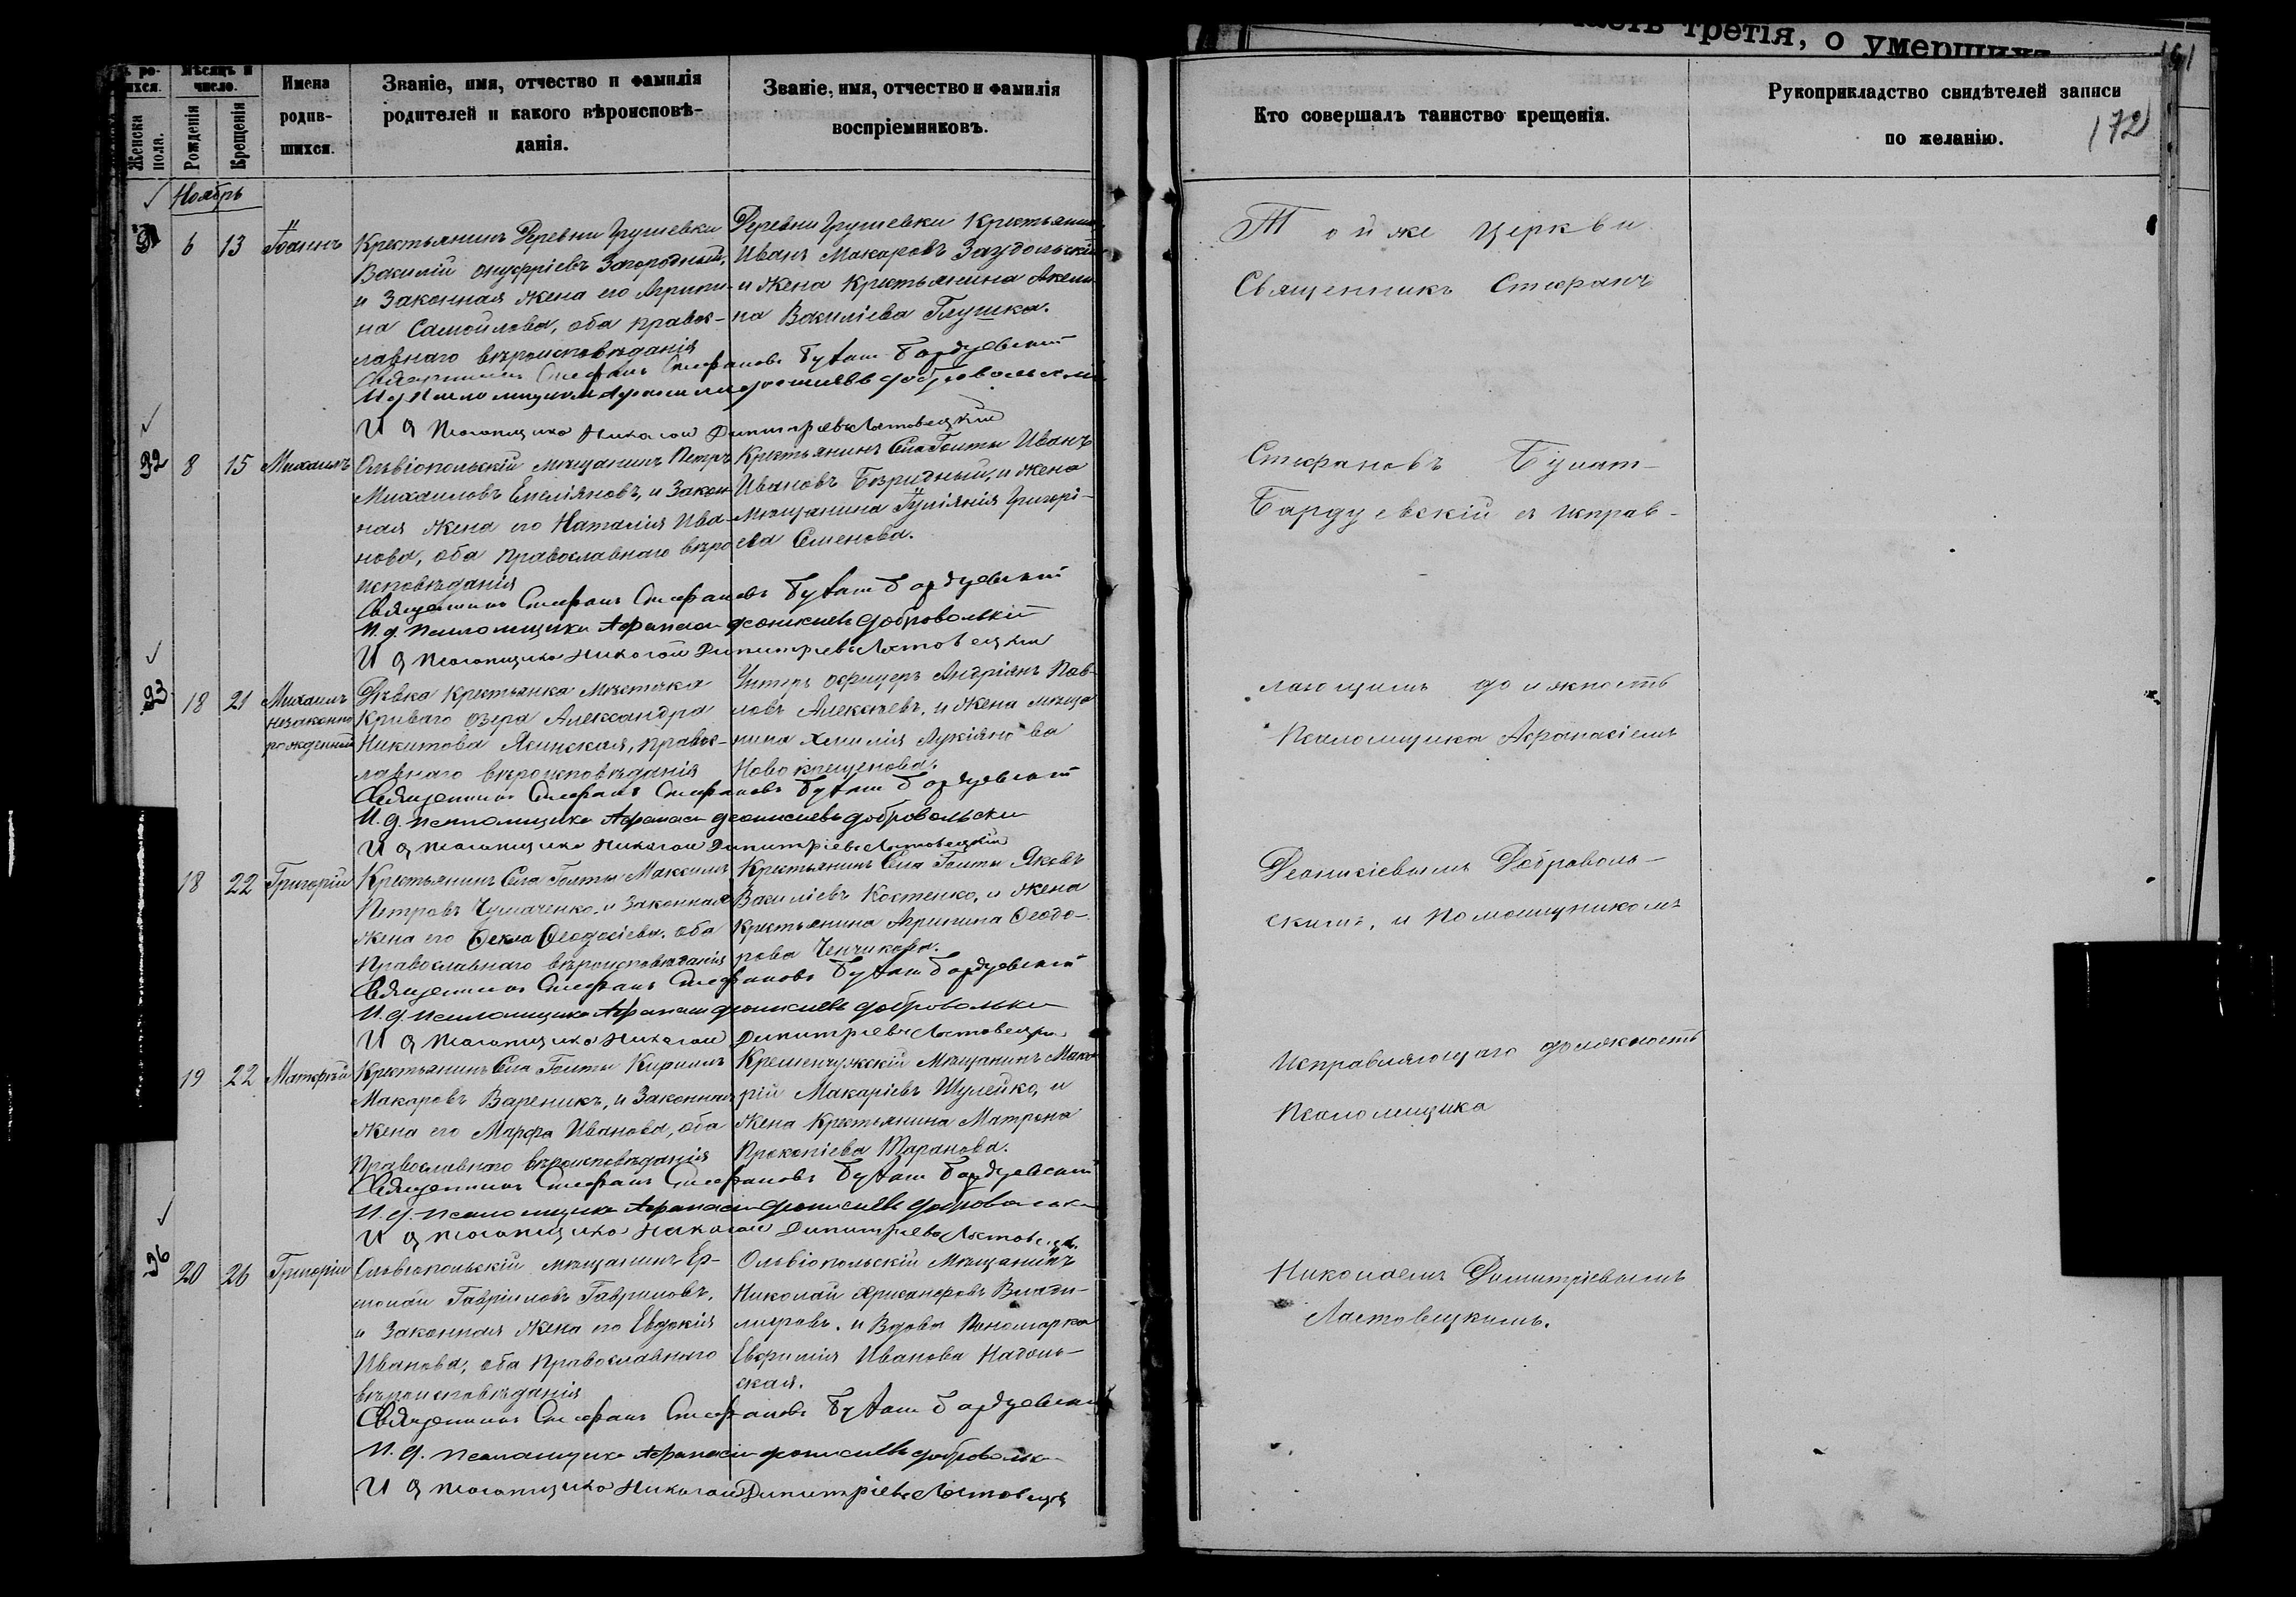 часть третія, о умершихъ
Мѣсяцъ и число.
Женска пола.
Рожденія
Крещенія
Имена родив-
шихся.
Званіе, имя, отчество и фамилія
родителей и какого вѣроисповѣ-
данія.
Званіе, имя, отчество и фамилія
воспріемниковъ.
Кто совершалъ таинство крещенія.
Рукоприкладство свидѣтелей записи
по желанію.
172
Ноябрь
6 13 Іоаннъ
Крестьянинъ Деревни Грушевки
Василій Онуфріевъ Загородный,
и Законная жена его Агрипи-
на Самойлова, оба правос-
лавнаго вѣроисповѣданія
Деревни Грушевки Крестьянинъ
Иванъ Макаровъ Заудольскій
и жена Крестьянина Акели-
на Василіева Глушка.
Священникъ Стефанъ Стефановъ Булат Бардуевский
И. д. Псаломщика Афанасий Леоникиевъ Добровольский
И д Псаломщика Николай Димитріевъ Лястовецкій
92 8 15 Михаилъ
Ольвіопольскій мѣщанинъ Петръ
Михаиловъ Емеліяновъ, и Закон-
ная жена его Наталія Ива-
нова, оба православнаго вѣро
исповѣданія
Крестьянинъ Села Голты Иванъ
Ивановъ Безридный, и жена
Мѣщанина Іуліянія Григорі-
ева Семенова.
Священникъ Стефанъ Стефановъ Булат Бардуевский
И. д. Псаломщика Афанасий Леоникиевъ Добровольский
И д Псаломщика Николай Димитріевъ Лястовецкій
93 18 21 Михаилъ
незаконно
рожденный
Дѣвка Крестьянка Мѣстечка
Криваго озера Александра
Никитова Ясинская, правос-
лавнаго вѣроисповѣданія
Унтеръ офицеръ Андріянъ Пав-
ловъ Алексѣевъ, и жена мѣща
нина Лукіянова
Новокрещенова.
Священникъ Стефанъ Стефановъ Булат Бардуевский
И. д. Псаломщика Афанасий Леоникиевъ Добровольский
И д Псаломщика Николай Димитріевъ Лястовецкій
18 22 Григорій
Крестьянинъ Села Голты Максимъ
Петровъ Чумаченко, и Законная
жена его Ѳекла Ѳеодосіева, оба
Православнаго вѣроисповѣданія
Крестьянинъ Села Голты Яковъ
Василіевъ Костенко, и жена
Крестьянина Агрипина Ѳеодо-
рова Ченчикова.
Священникъ Стефанъ Стефановъ Булат Бардуевский
И. д. Псаломщика Афанасий Леоникиевъ Добровольский
И д Псаломщика Николай Димитріевъ Лястовецкій
19 22 Матфѣй
Крестьянинъ Села Голты Кириллъ
Макаровъ Вареникъ, и Законная
жена его Марфа Иванова, оба
Православнаго вѣроисповѣданія
Кременчужскій Мѣщанинъ Мака
рій Макаріевъ Шулейко, и
жена Крестьянина Матрона
Прокопіева Таранова.
Священникъ Стефанъ Стефановъ Булат Бардуевский
И. д. Псаломщика Афанасий Леоникиевъ Добровольский
И д Псаломщика Николай Димитріевъ Лястовецкій
96 20 26 Григорій
Ольвіопольскій мѣщанинъ Ер-
молай Гавріиловъ Гавриловъ,
и Законная жена его Евдокія
Иванова, оба Православнаго
вѣроисповѣданія
Ольвіопольскій Мѣщанинъ
Николай Влади-
міровъ, и Вдова Пономарка
Евфимія Иванова Надоль-
ская.
Священникъ Стефанъ Стефановъ Булат Бардуевский
И. д. Псаломщика Афанасий Леоникиевъ Добровольский
И д Псаломщика Николай Димитріевъ Лястовецкій
Той же церкви
Священникъ Стефанъ
Стефановъ Булат-
Бардуевскій съ исправ-
ляющимъ должность
Псаломщика Афанасіемъ
Леоникіевымъ Доброволь-
скимъ, и помощникомъ
Исправляющаго должность
Псаломщика
Николаемъ Димитріевымъ
Лястовецкимъ.